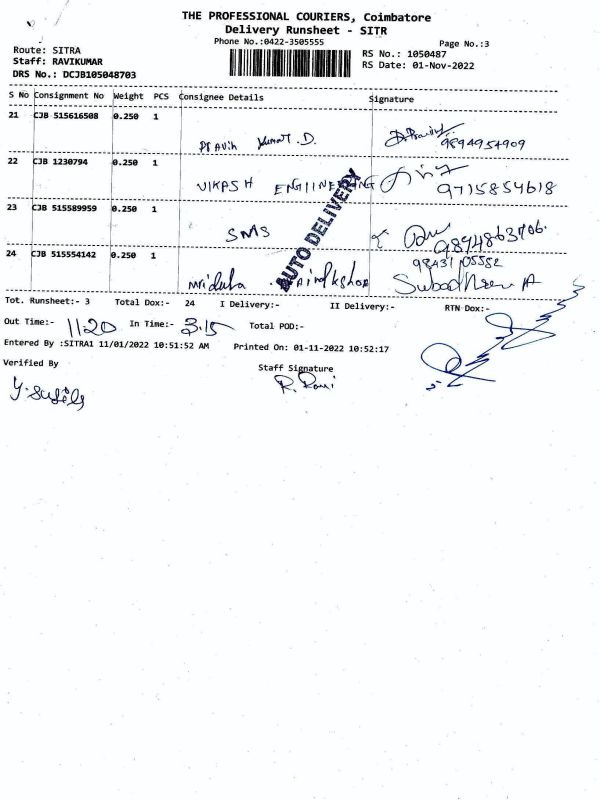 THE PROFESSIONAL COURIERS, Coimbatore
Delivery Runsheet - SITR
Phone No.:0422-3505555
Page No.:3
Route: SITRA
RS No.: 1050487
Staff: RAVIKUMAR
RS Date: 01-Nov-2022
DRS No.: DCJB105048703
S No Consignment No Weight PCS Consignee Details Signature
21 CJB 515616508 0.250 1
Pravin Kumar. D. 9894954909
22 CJB 1230794 0.250 1
VIKASH ENGIINEERING 9715854618
23 CJB 515589959 0.250 1
SMS
AUTO DELIVERY
24 CJB 515554142 0.250 1
98431 05582
Mridula
Tot. Runsheet:- 3 Total Dox:- 24 I Delivery:- II Delivery:- RTN Dox:-
Out Time:- 11:20 In Time:- 3:15 Total POD:-
Entered By :SITRA1 11/01/2022 10:51:52 AM Printed On: 01-11-2022 10:52:17
Verified By Staff Signature